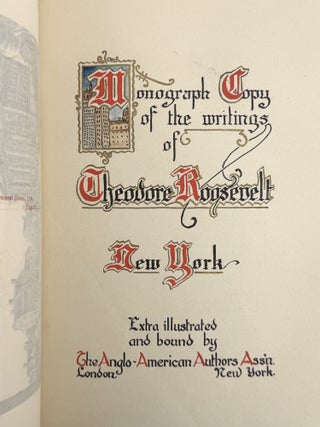 Monograph Copy
of the writings
of
Theodore Roosevelt
New York
Extra illustrated
and bound by
The Anglo-American Authors Ass'n.
London. New York.